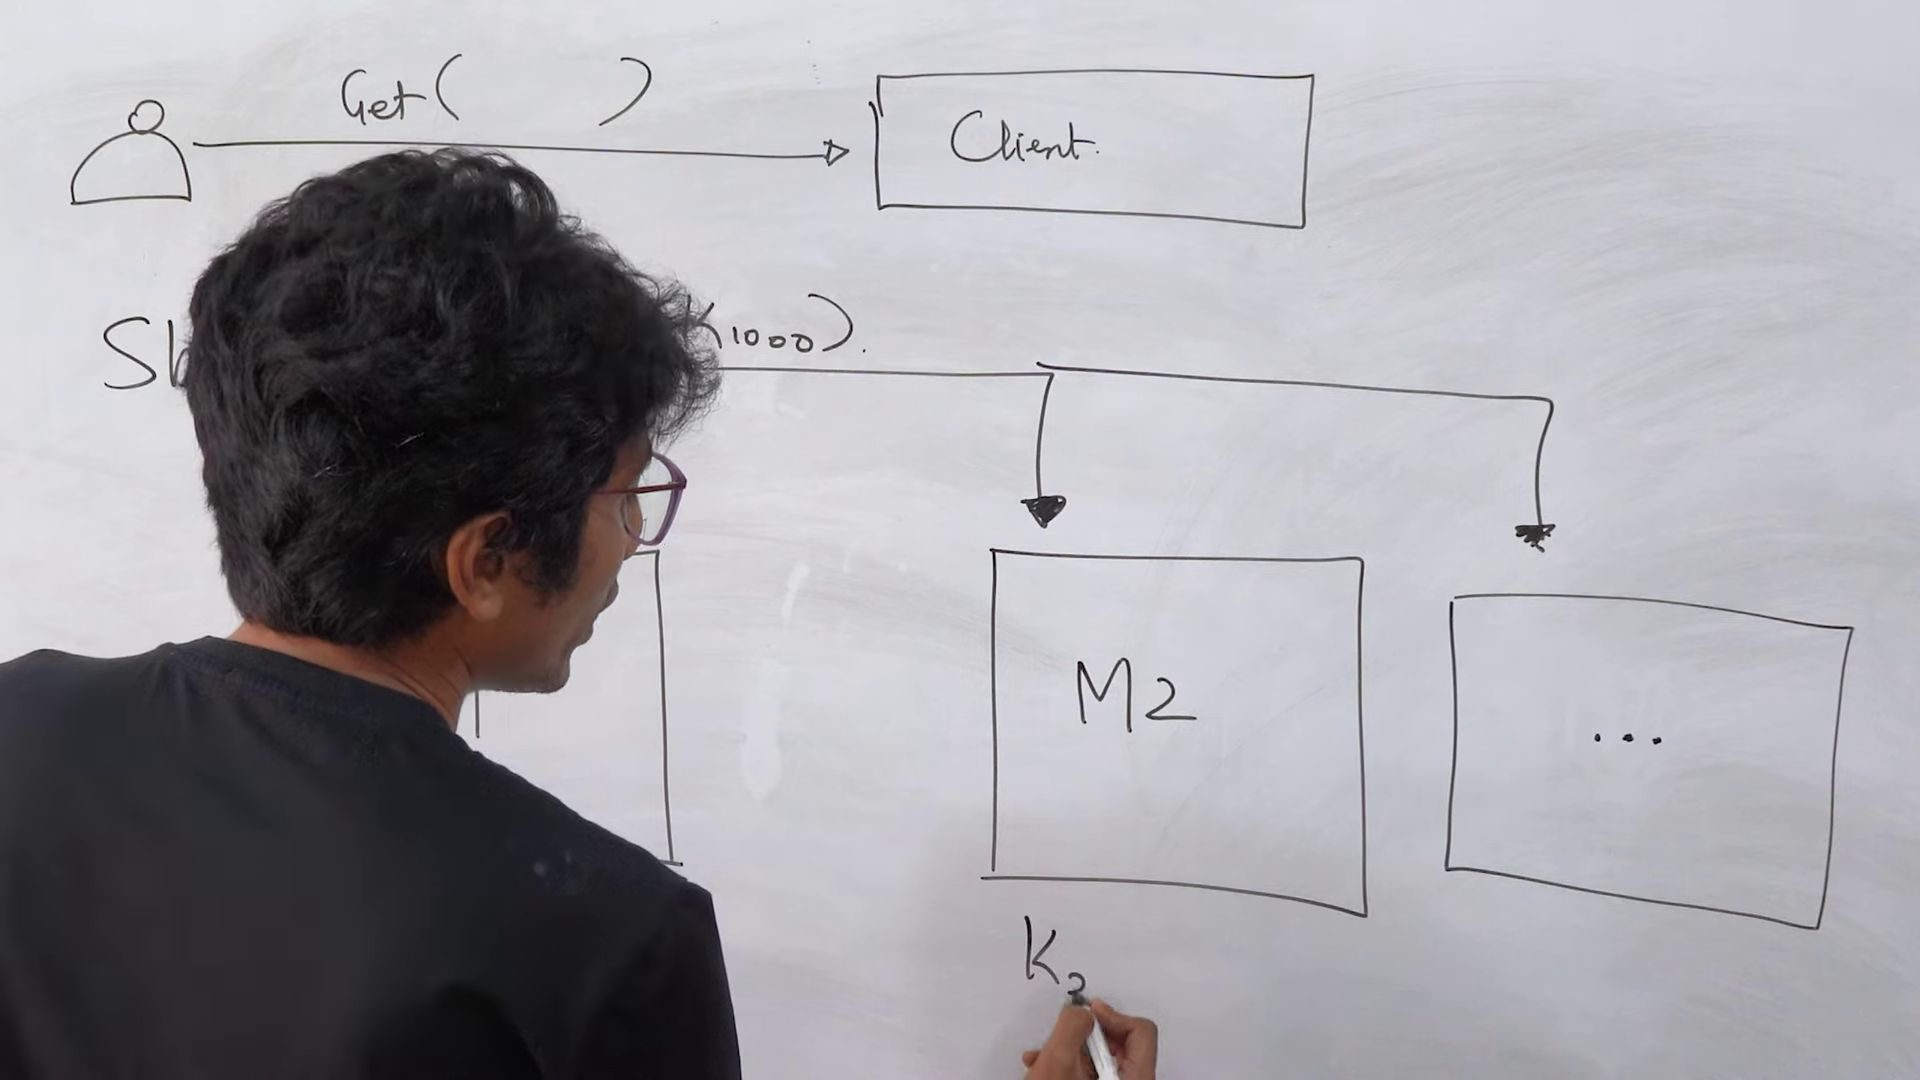 Get( )
Client.
K1000).
M2
...
K2